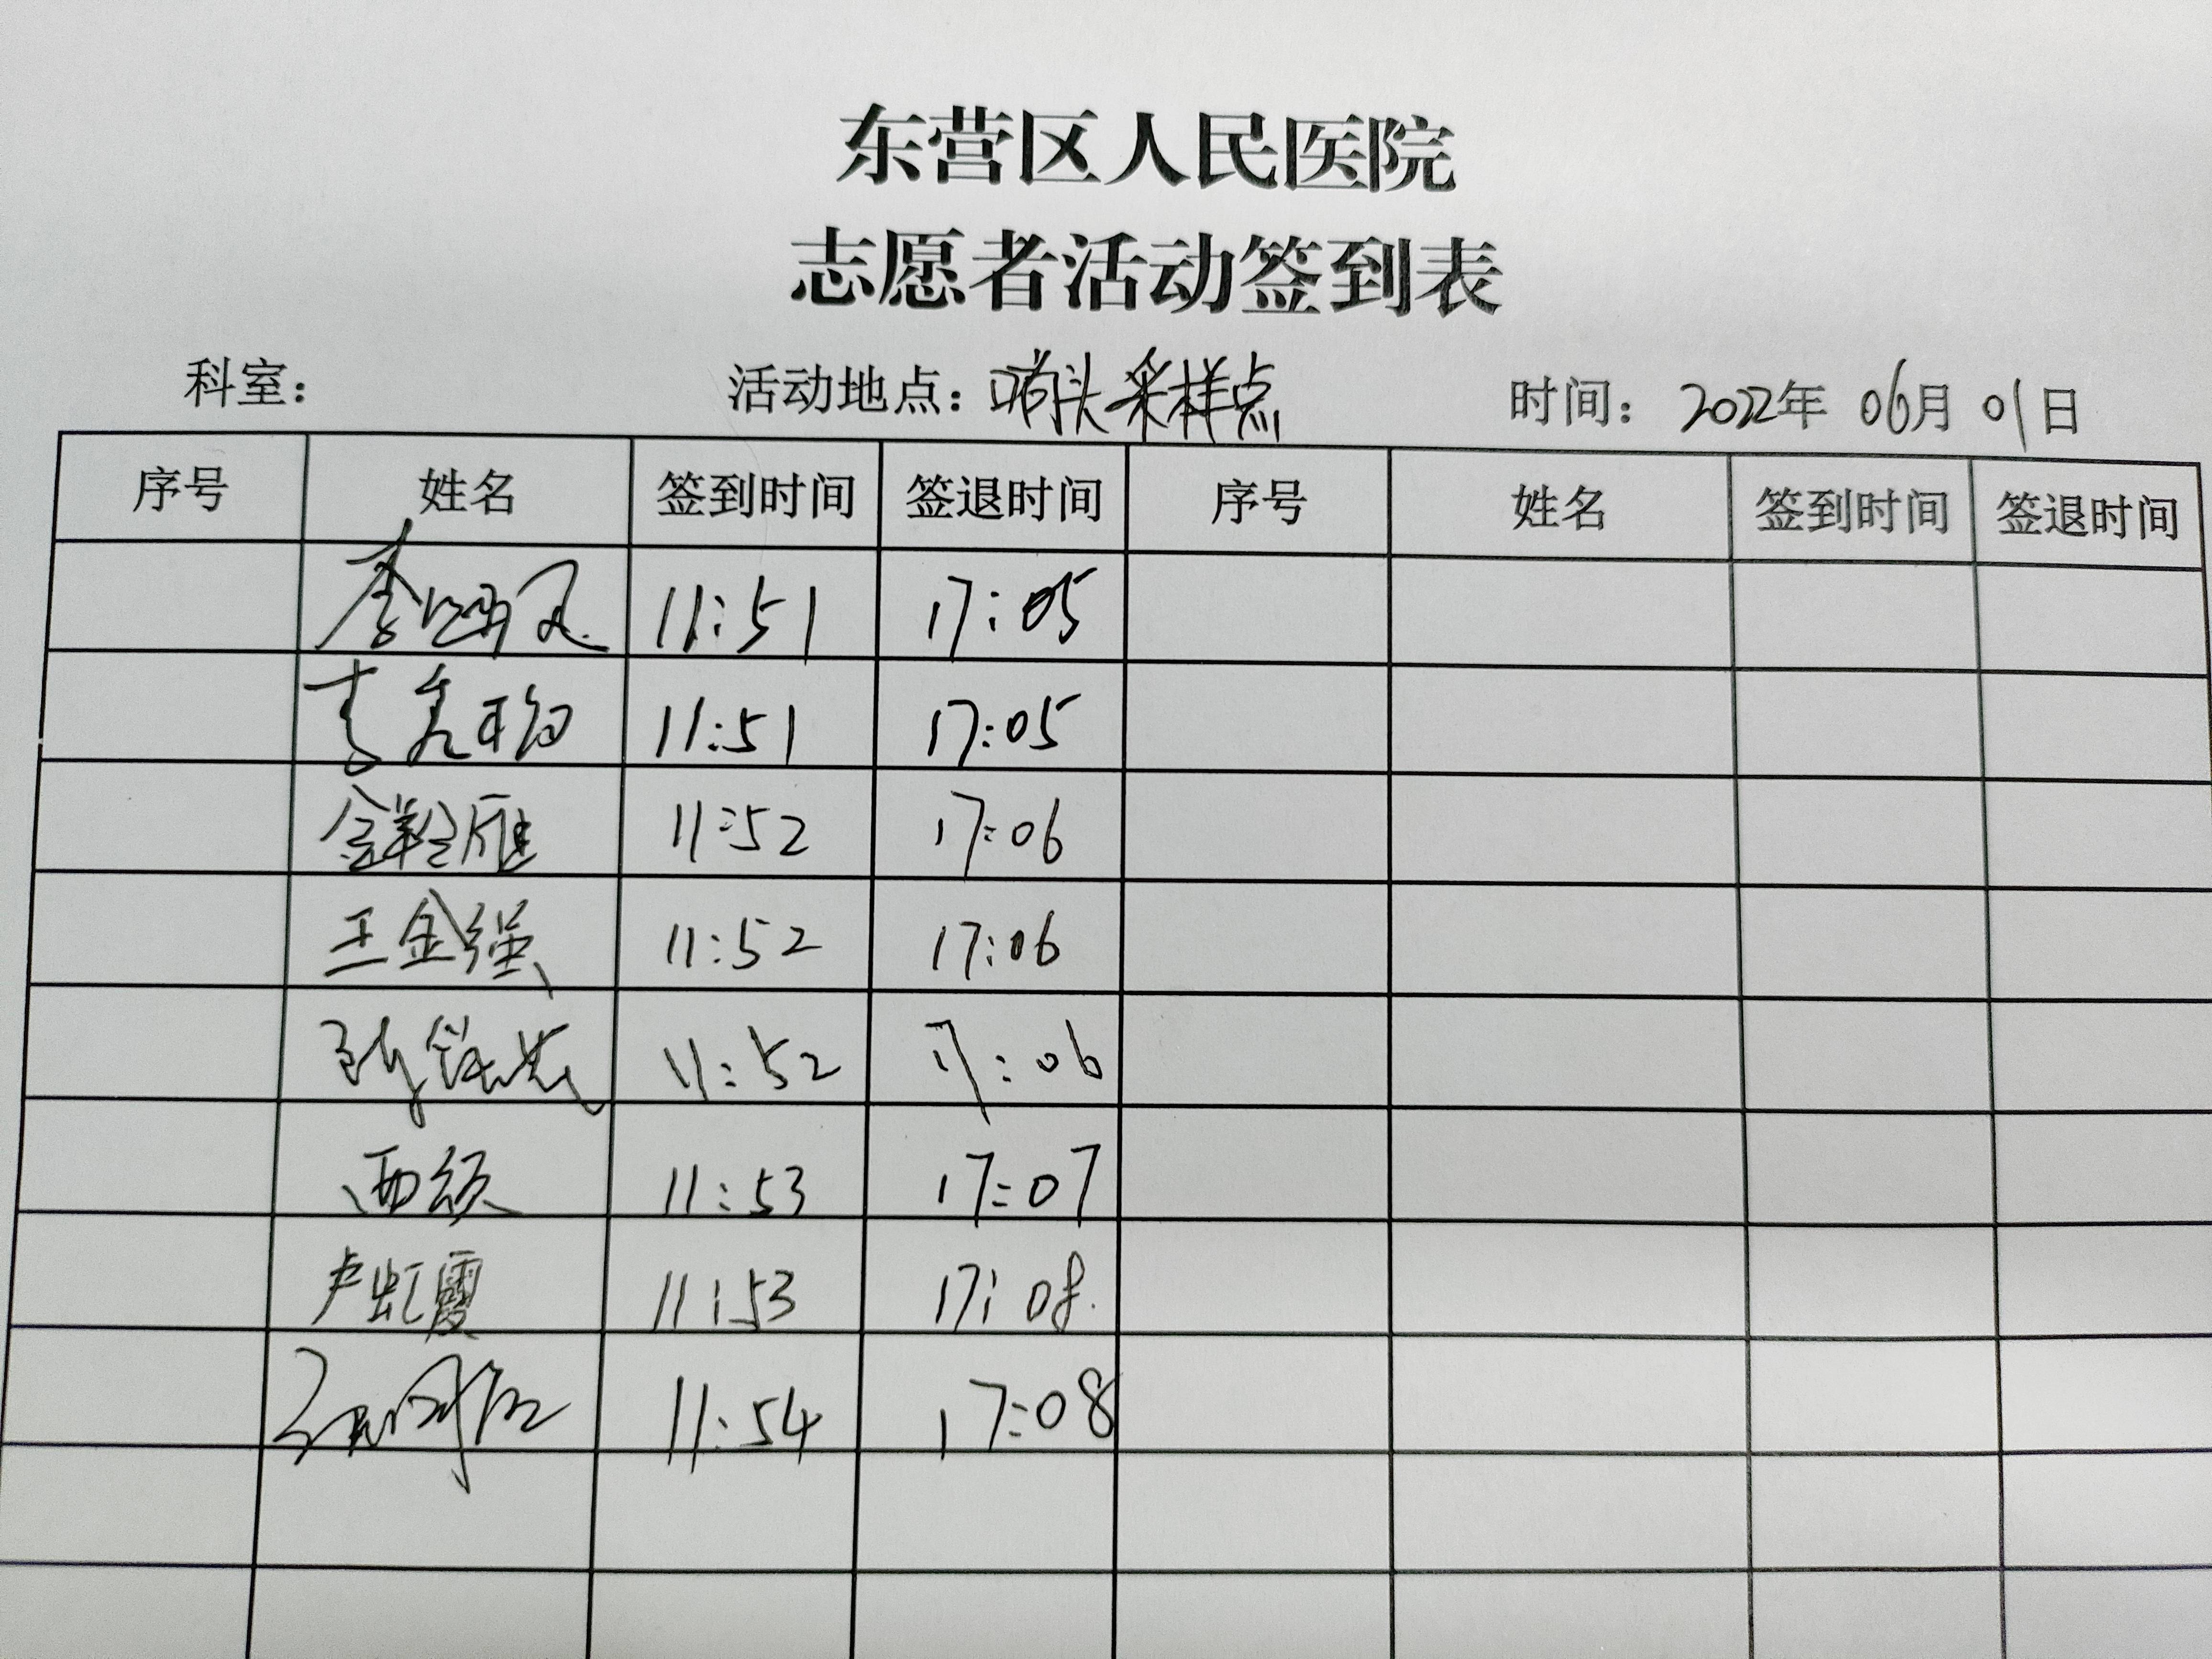 东营区人民医院
志愿者活动签到表
科室： 活动地点：哨头采样点 时间：2022年 06月 01日
序号 姓名 签到时间 签退时间 序号 姓名 签到时间 签退时间
李 11:51 17:05
李秀 11:51 17:05
11:52 17:06
王金强 11:52 17:06
11:52 17:06
西颂 11:53 17:07
卢虹霞 11:53 17:08.
11:54 17:08